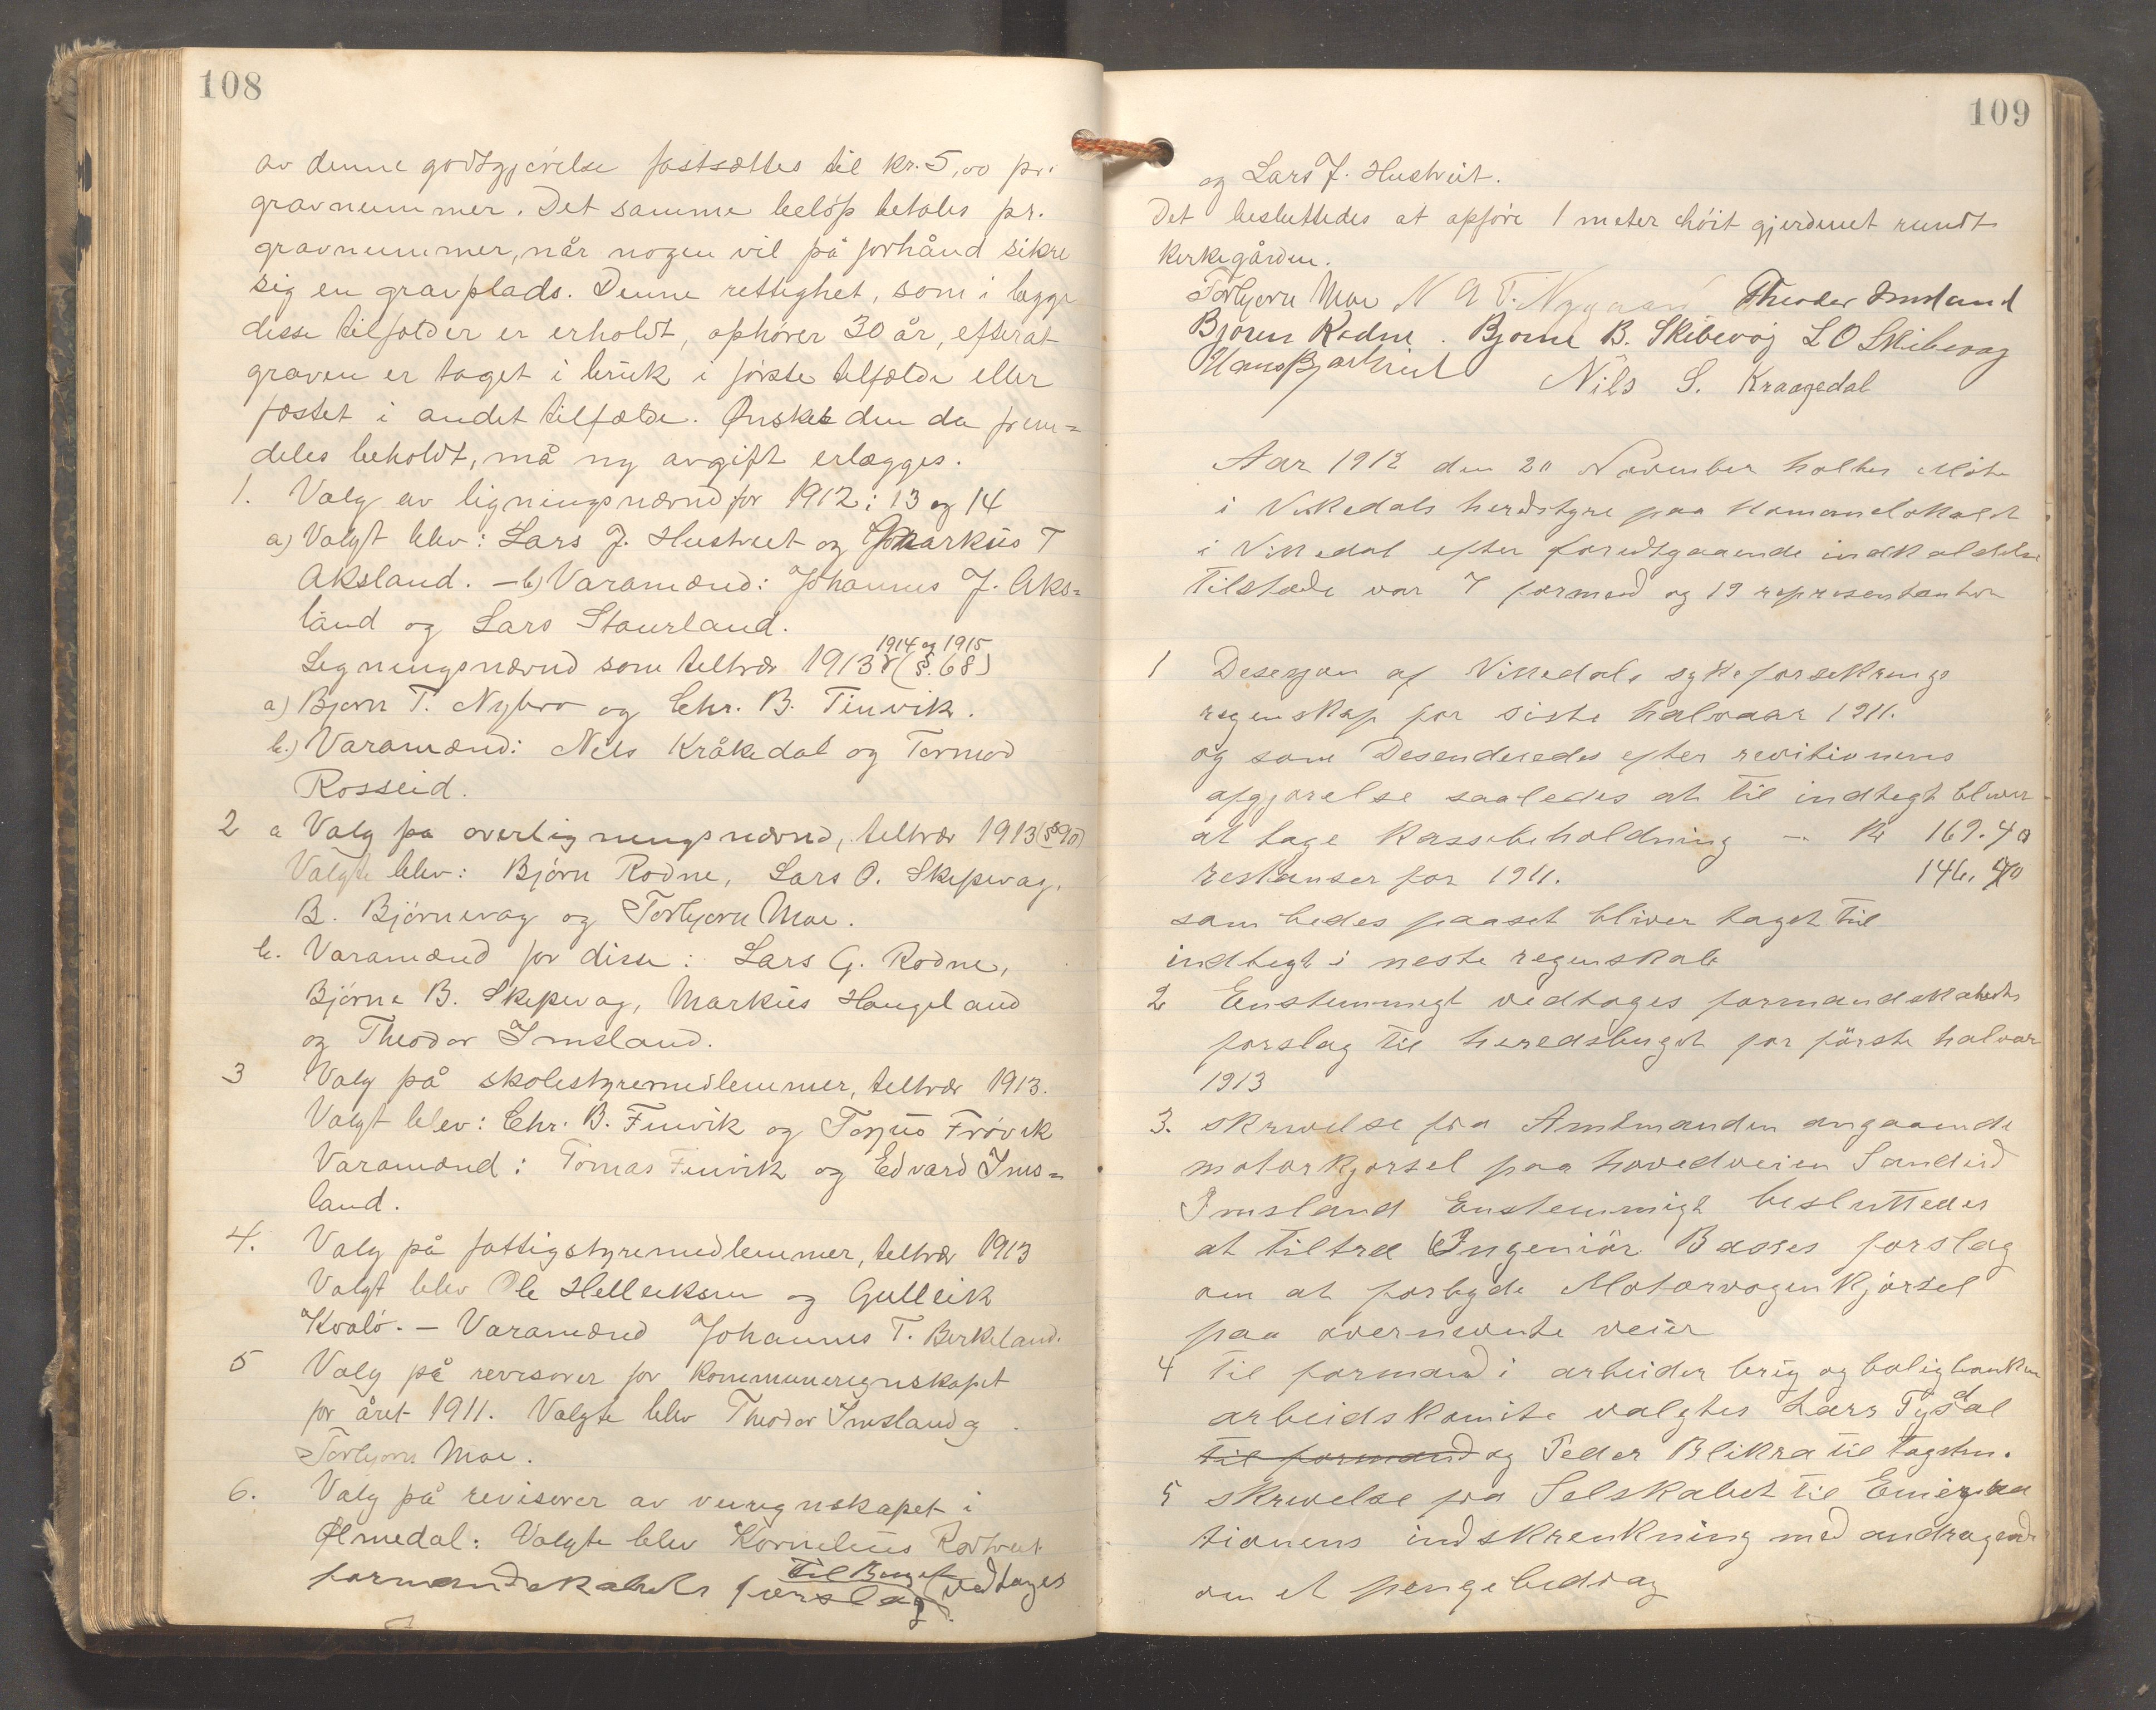 108
av denne godtgjørelse fastsættes til kr. 5,00 pr.
gravnummer. Det samme beløp betales pr.
gravnummer, når nogen vil på forhånd sikre
sig en gravplads. Denne rettighet, som i begge
disse tilfælder er erholdt, ophører 30 år, efterat
graven er taget i bruk i første tilfælde eller
fæstet i andet tilfælde. Ønskes den da frem=
deles beholdt, må ny avgift erlægges.
1. Valg av ligningsnævnd for 1912: 13 og 14
a) Valgt blev: Lars J. Hustveit og Markus T
Aksland. – b) Varamænd: Johannes J. Aks=
land og Lars Staurland.
1914 og 1915
Ligningsnævnd som tiltrær 1913 (§. 68)
a) Bjørn T. Nybro og Chr. B. Finvik.
b.) Varamænd: Nils Kråkedal og Tormod
Rosseid.
2 a Valg på overligningsnævnd, tiltrær 1913 (§90)
Valgte blev: Bjørn Rodne, Lars O. Skipevag,
B. Bjørnevag og Torbjørn Moe.
b. Varamænd for disse: Lars G. Rodne,
Bjørne B. Skipevag, Markus Haugeland
og Theodor Imsland.
3 Valg på skolestyremedlemmer, tiltrær 1913.
Valgt blev: Chr. B. Finvik og Torjus Frøvik
Varamænd: Tomas Finvik og Edvard Ims=
land.
4. Valg på fattigstyremedlemmer, tiltrær 1913
Valgt blev Ole Helleiksen og Gulleik
Kvalø. – Varamænd Johannes T. Birkeland.
5 Valg på revisorer for kommuneregnskapet
for året 1911. Valgte blev Theodor Imsland og
Torbjørn Moe.
6. Valg på revisorer av veiregnskapet i
Ølmedal: Valgte blev Kornelius Rødtveit
til
formandskabets forslag vedtages
109
og Lars J. Hustveit.
Det besluttedes at opføre 1 meter høit gjerdenet rundt
kirkegården.
Torbjørn Moe N A T. Nygaard Theodor Imsland
Bjørn Rodne. Bjørne B. Skibevåg L O Skibevag
Hans Nils S. Kraagedal
Aar 1912 den 20 November holtes Møte
i Vikedals herdstyre paa Komunelokalet
i Vikedal efter forutgaaende indkaldelse
Tilstæde var 7 formend og 19 representanter
1 Desesjon af Vikedals sykeforsekrings
regenskap for siste halvaar 1911.
og som Desenderedes efter revitionens
afgjørelse saaledes at til indtegt bliver
at tage Kassebeholdning – Kr 169.40
restanser for 1911. 146.40
som bedes paaset bliver taget til
indtegt i neste regenskab
2 Enstemmigt vedtoges formandskabets
forslag til heredsbuget for første halvaar
1913
3. skrivelse fra Amtmanden angaaende
motorkjørsel paa hovedveien Sandeid
Imsland Enstemmigt besluttedes
at tiltræ Ingeniør Basses forslag
om at forbyde Motorvogenkjørsel
paa overnevnte veier
4 til formand i arbeider brug og boligbanken
arbeidskomite valgtes Lars Tysdal
til formand og Peder Blikra til
5 skrivelse fra Selskabet til Emigra
tionens indskrenkning med andragende
om et pengebedrag